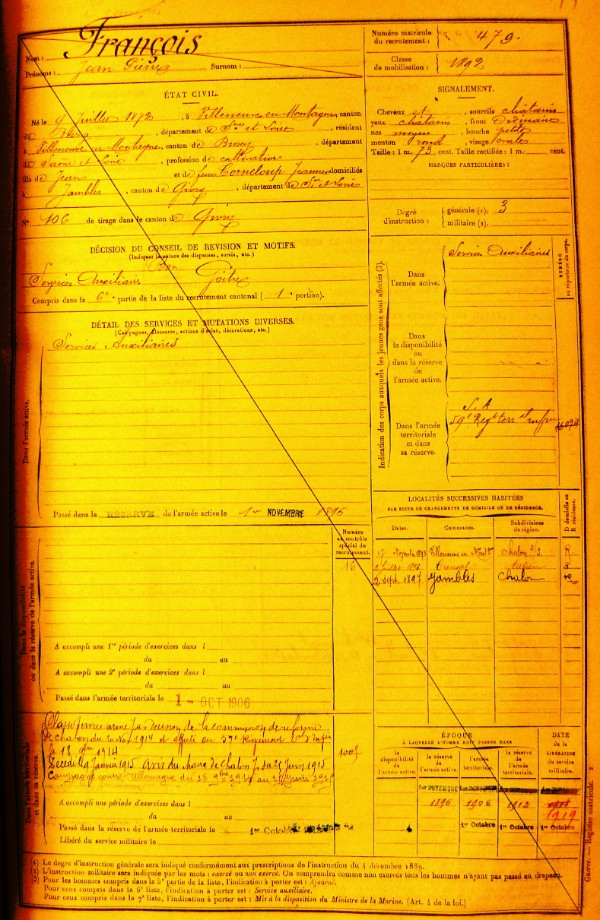 François
Nom :
Prénoms : Jean Pierre Surnom :
Numéro matricule
du recrutement : 479.
Classe
de mobilisation : 1892
ÉTAT CIVIL.
Né le 9 Juillet 1872, à Villeneuve en Montagne canton
de Buxy, département de S. et Loire, résidant
à Villeneuve en Montagne, canton de Buxy, département
de Saône et Loire, profession de cultivateur
fils de Jean et de feue Corneloup Jeanne domiciliés
à Jambles, canton de Givry, département de S. et Loire
N° 106 de tirage dans le canton de Givry
SIGNALEMENT.
Cheveux et sourcils châtains
yeux châtains front Ordinaire
nez moyen, bouche petite
menton rond, visage
Taille : 1 m. 73 cent. Taille rectifiée : 1 m. cent.
MARQUES PARTICULIÈRES :
Degré
d'instruction : générale (1). 3
militaire (2).
DÉCISION DU CONSEIL DE REVISION ET MOTIFS.
(Indiquer la nature des dispenses, sursis, etc.)
Bon
Services Auxiliaires Goitre
Compris dans la 6e partie de la liste du recrutement cantonal ( 1 portion).
DÉTAIL DES SERVICES ET MUTATIONS DIVERSES.
(Campagnes, blessures, actions d'éclat, décorations, etc.)
Services Auxiliaires
Dans l'armée active.
Passé dans la RÉSERVE de l'armée active le 1er NOVEMBRE 1896
Indication des corps auxquels les jeunes gens sont affectés (3).
Dans
l'armée active.
Services Auxiliaires
NUMÉRO
au répertoire du corps.
Dans
la disponibilité
ou
dans la réserve
de
l'armée active.
Dans l'armée
territoriale
et dans
sa réserve.
S. A
59e Régt terr al
LOCALITÉS SUCCESSIVES HABITÉES
PAR SUITE DE CHANGEMENTS DE DOMICILE OU DE RÉSIDENCE.
D domicile ou
R résidence.
Dates. Communes. Subdivisions
de région.
Chalon R
2 Septb. 1897 Jambles Chalon
Numéro
au contrôle
spécial du
recrutement.
16
Dans la disponibilité
ou dans la réserve de l'armée active.
A accompli une 1re période d'exercices dans l
du au
A accompli une 2e période d'exercices dans l
du au
Passé dans l'armée territoriale le 1 - OCT 1906
Classé service armé par décision de la commission de réforme
de Chalon du 1914 et affecté au 37e Régiment
le 13 1914
Janvier 1915 avis du maire de Chalon 21 Juin 1915
Campagne contre l'Allemagne du 1914 au 1915
Dans l'armée territoriale
et dans sa réserve.
A accompli une période d'exercices dans l
du au
Passé dans la réserve de l'armée territoriale le 1er Octobre
Libéré du service militaire le
ÉPOQUE
À LAQUELLE L'HOMME DOIT PASSER DANS
DATE
de la
LIBÉRATION
du service
militaire.
la
disponibilité
de l'armée active.
la réserve
de
l'armée active.
l'armée
territoriale.
la réserve
de
l'armée
territoriale.
1er NOVEMBRE
1896 1906 1912 1919
1er Octobre 1er Octobre 1er Octobre
(1) Le degré d'instruction générale sera indiqué conformément aux prescriptions de l'instruction du 4 décembre 1889.
(2) L'instruction militaire sera indiquée par les mots : exercé ou non exercé. On comprendra comme non exercés tous les hommes n'ayant pas passé au drapeau.
(3) Pour les hommes compris dans la 5e partie de la liste, l'indication à porter est : Ajourné.
Pour ceux compris dans la 6e liste, l'indication à porter est : Service auxiliaire.
Pour ceux compris dans la 7e liste, l'indication à porter est : Mis à la disposition du Ministre de la Marine. (Art. 4 de la loi.)
Guerre. — Registre matricule.